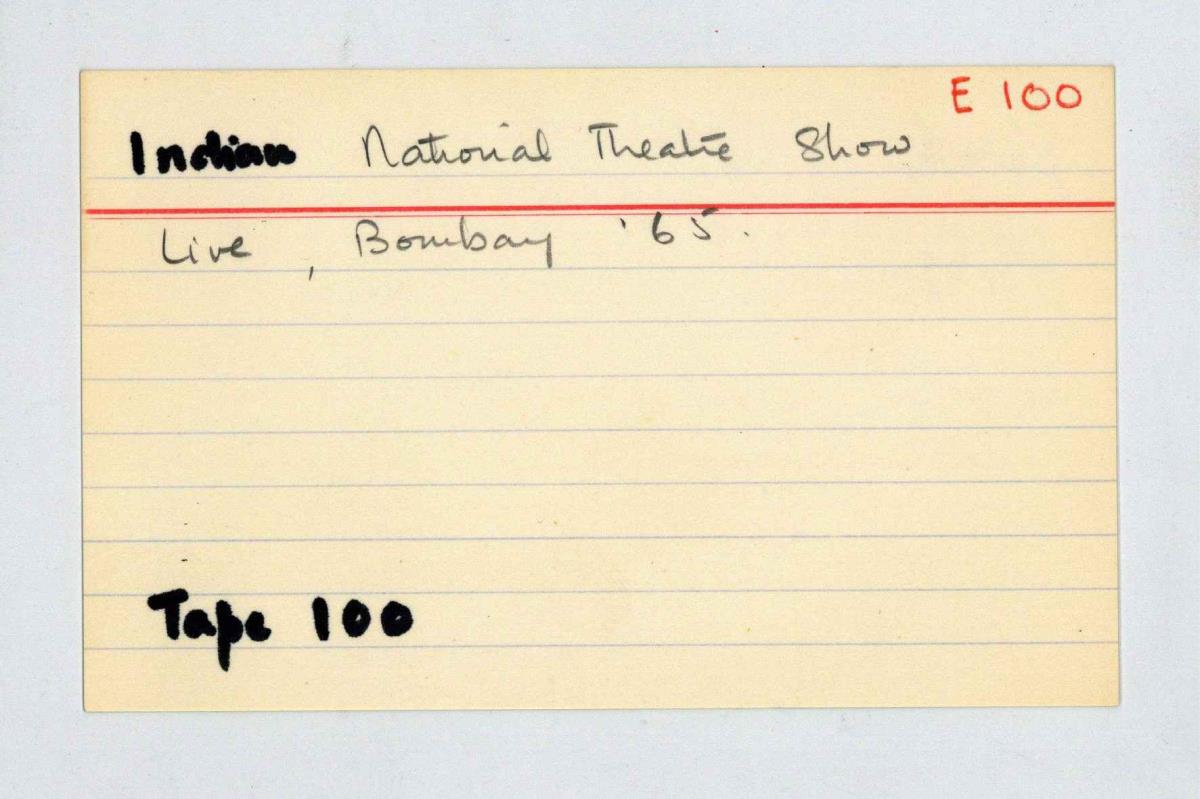 E 100
Indian National Theatre Show
Live, Bombay '65.
Tape 100